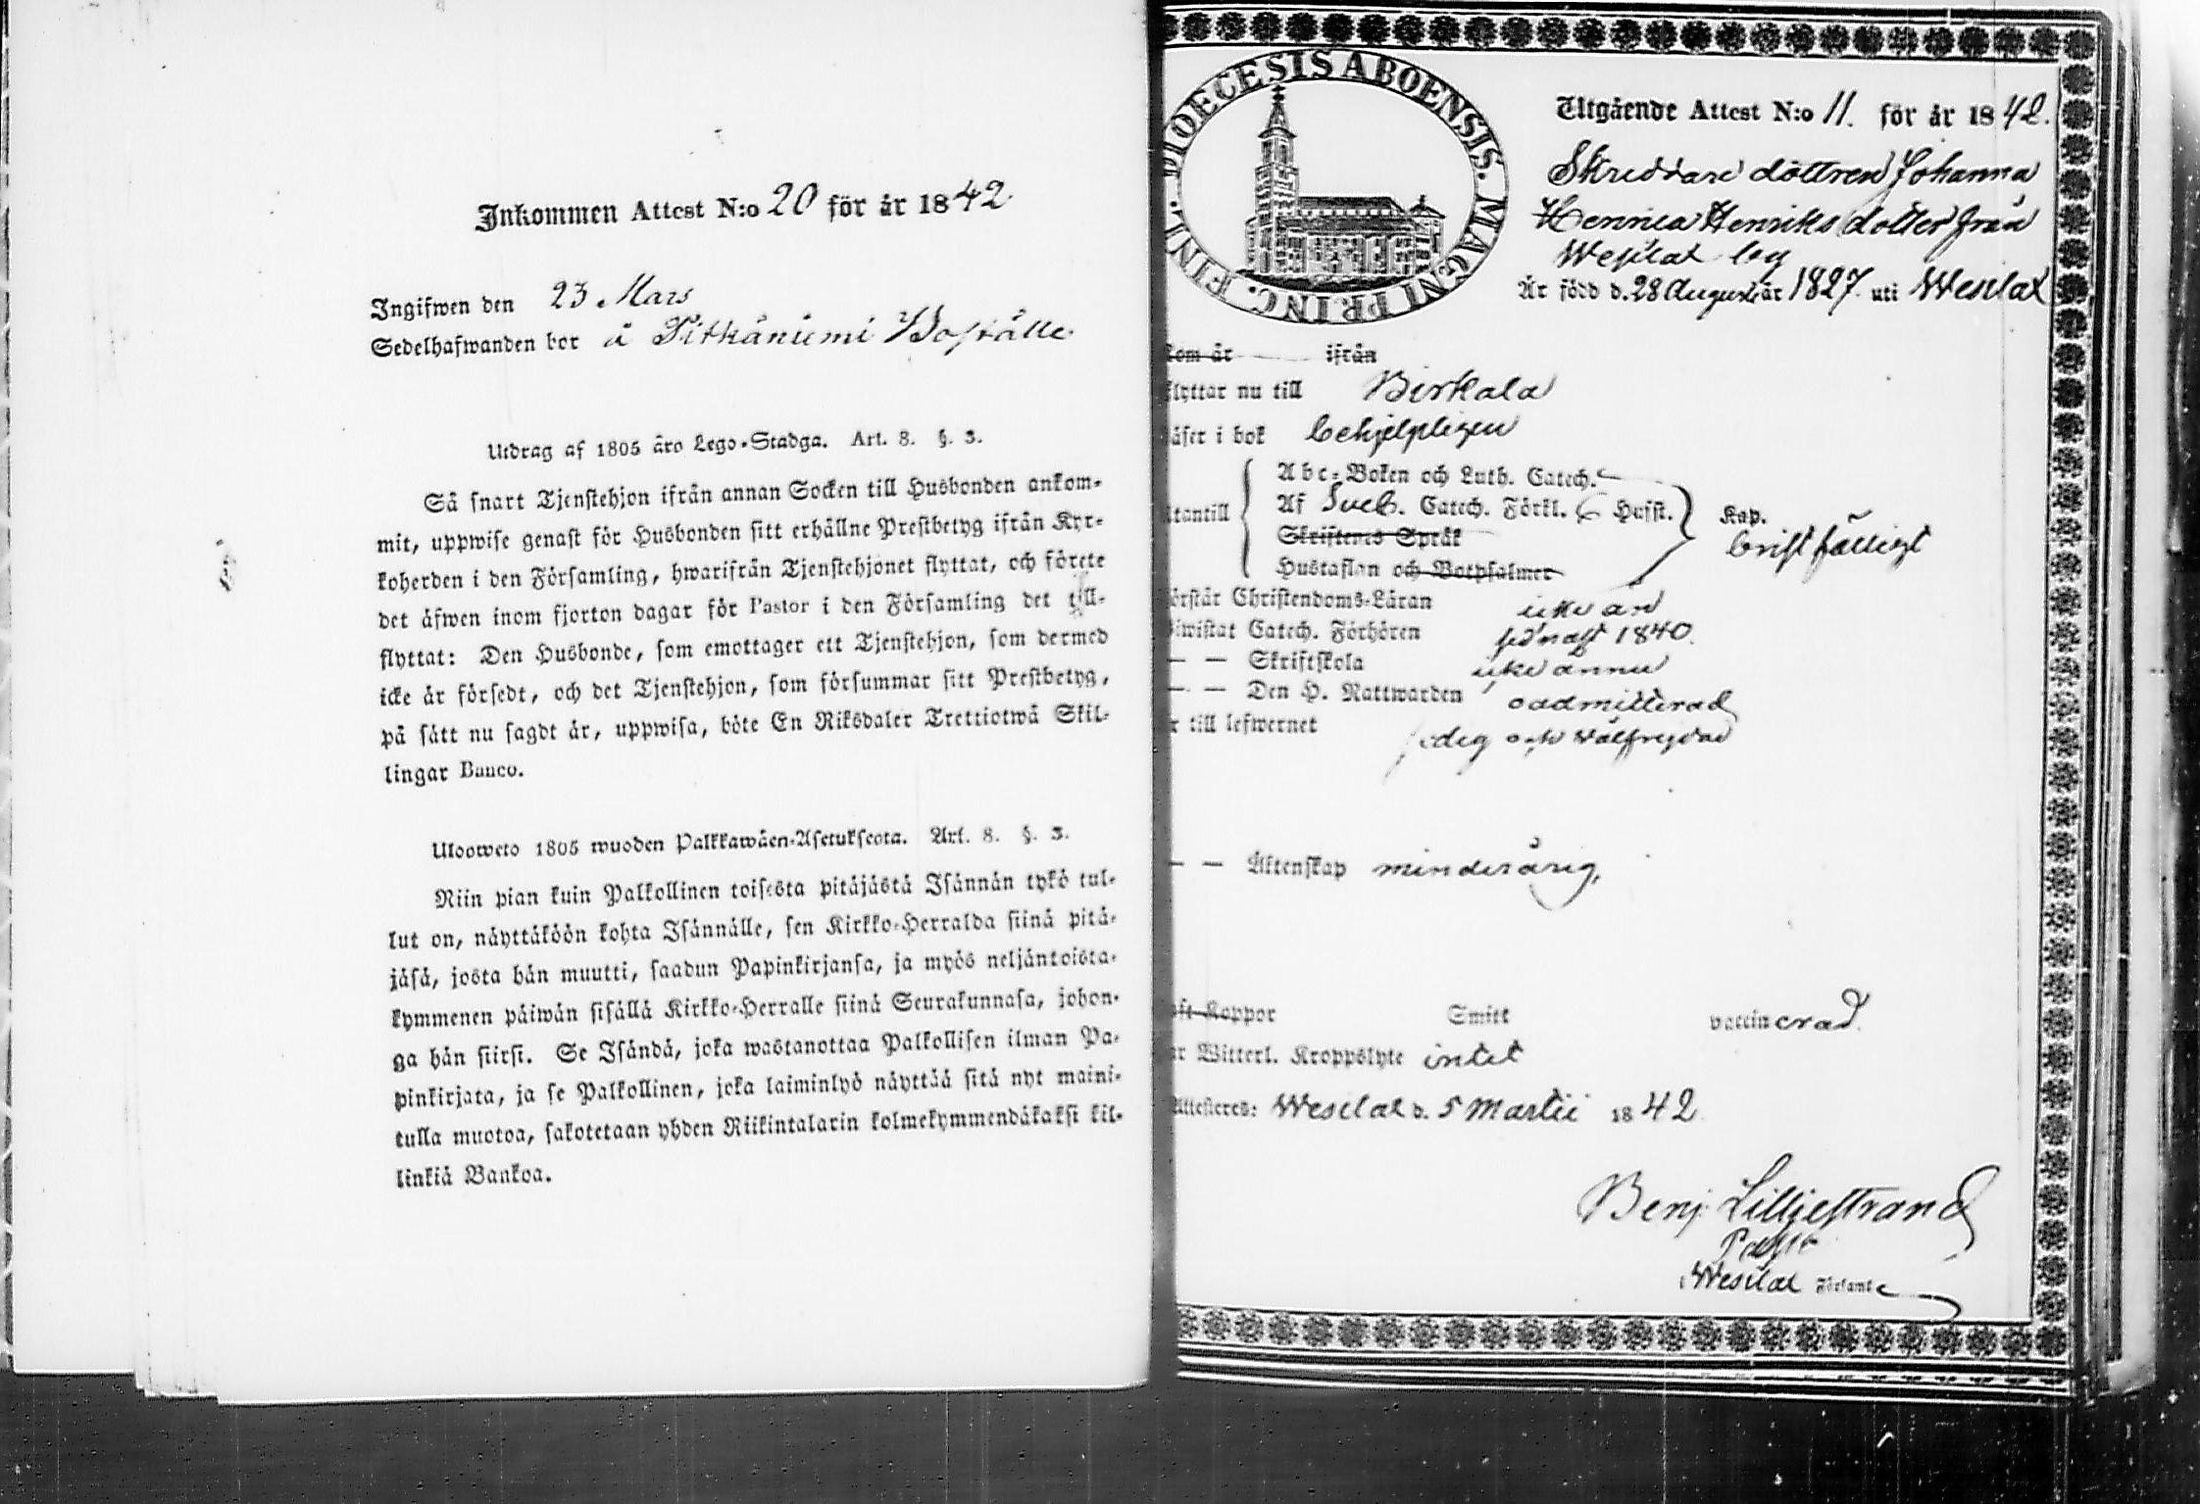 Inkommen Attest N:o 20 för år 1842.
Ingifwen den 23 Mars
Sedelhafwanden bor å Pitkäniemi Boställe
Utdrag af 1805 åro Lego-Stadga. Art. 8. §. 3.
Så snart Tjenstehjon ifrån annan Socken till Husbonden ankom-
mit, uppwise genast för Husbonden sitt erhållne Prestbetyg ifrån Kyr-
koherden i den Församling, hwarifrån Tjenstehjonet flyttat, och förete
det äfwen inom fjorton dagar för Pastor i den Församling det till-
flyttat: Den Husbonde, som emottager ett Tjenstehjon, som dermed
icke är försedt, och det Tjenstehjon, som försummar sitt Prestbetyg,
på sätt nu sagdt är, uppwisa, böte En Riksdaler Trettiotwå Skil-
lingar Banco.
Uloosweto 1805 wuoden Palkkawäen-Asetuksesta. Art. 8. §. 3.
Niin pian kuin Palkollinen toisesta pitäjästä Isännän tykö tul-
lut on, näyttäköön kohta Isännälle, sen Kirkko-Herralda siinä pitä-
jäsä, josta hän muutti, saadun Papinkirjansa, ja myös neljäntoista-
kymmenen päiwän sisällä Kirkko-Herralle siinä Seurakunnasa, johon-
ga hän siirsi. Se Isändä, joka wastanottaa Palkollisen ilman Pa-
pinkirjata, ja se Palkollinen, joka laiminlyö näyttää sitä nyt maini-
tulla muotoa, sakotetaan yhden Riikintalarin kolmekymmendäkaksi kil-
linkiä Bankoa.
DIOECESIS ABOENSIS. MAGNI PRINC. FINL.
Utgående Attest N:o 11. för år 1842.
Skreddare dottren Johanna
Henrica Henriks dotter från
Wesilax by
Är född d. 28 Augusti år 1827 uti Wesilax
kom år ifrån
flyttar nu till Birkala
läser i bok behjelpligen
utantill
Abc-Boken och Luth. Catech.
Af Sveb. Catech. Förkl. Husst.
Skriftenes Språk
Hustaflan och Botpsalmer
Kap.
bristfälligt
förstår Christendoms-Läran icke än
biwistat Catech. Förhören sednast 1840.
— — Skriftskola icke ännu
— — Den H. Nattwarden oadmitterad
är till lefwernet sedig och wälfrejdad
— — Äktenskap minderårig,
haft Koppor Smitt vaccinerad.
har Witterl. Kroppslyte intet
Attesteres: Wesilax d. 5 Martii 1842
Benj. Lilljestrand
i Wesilax Församl.